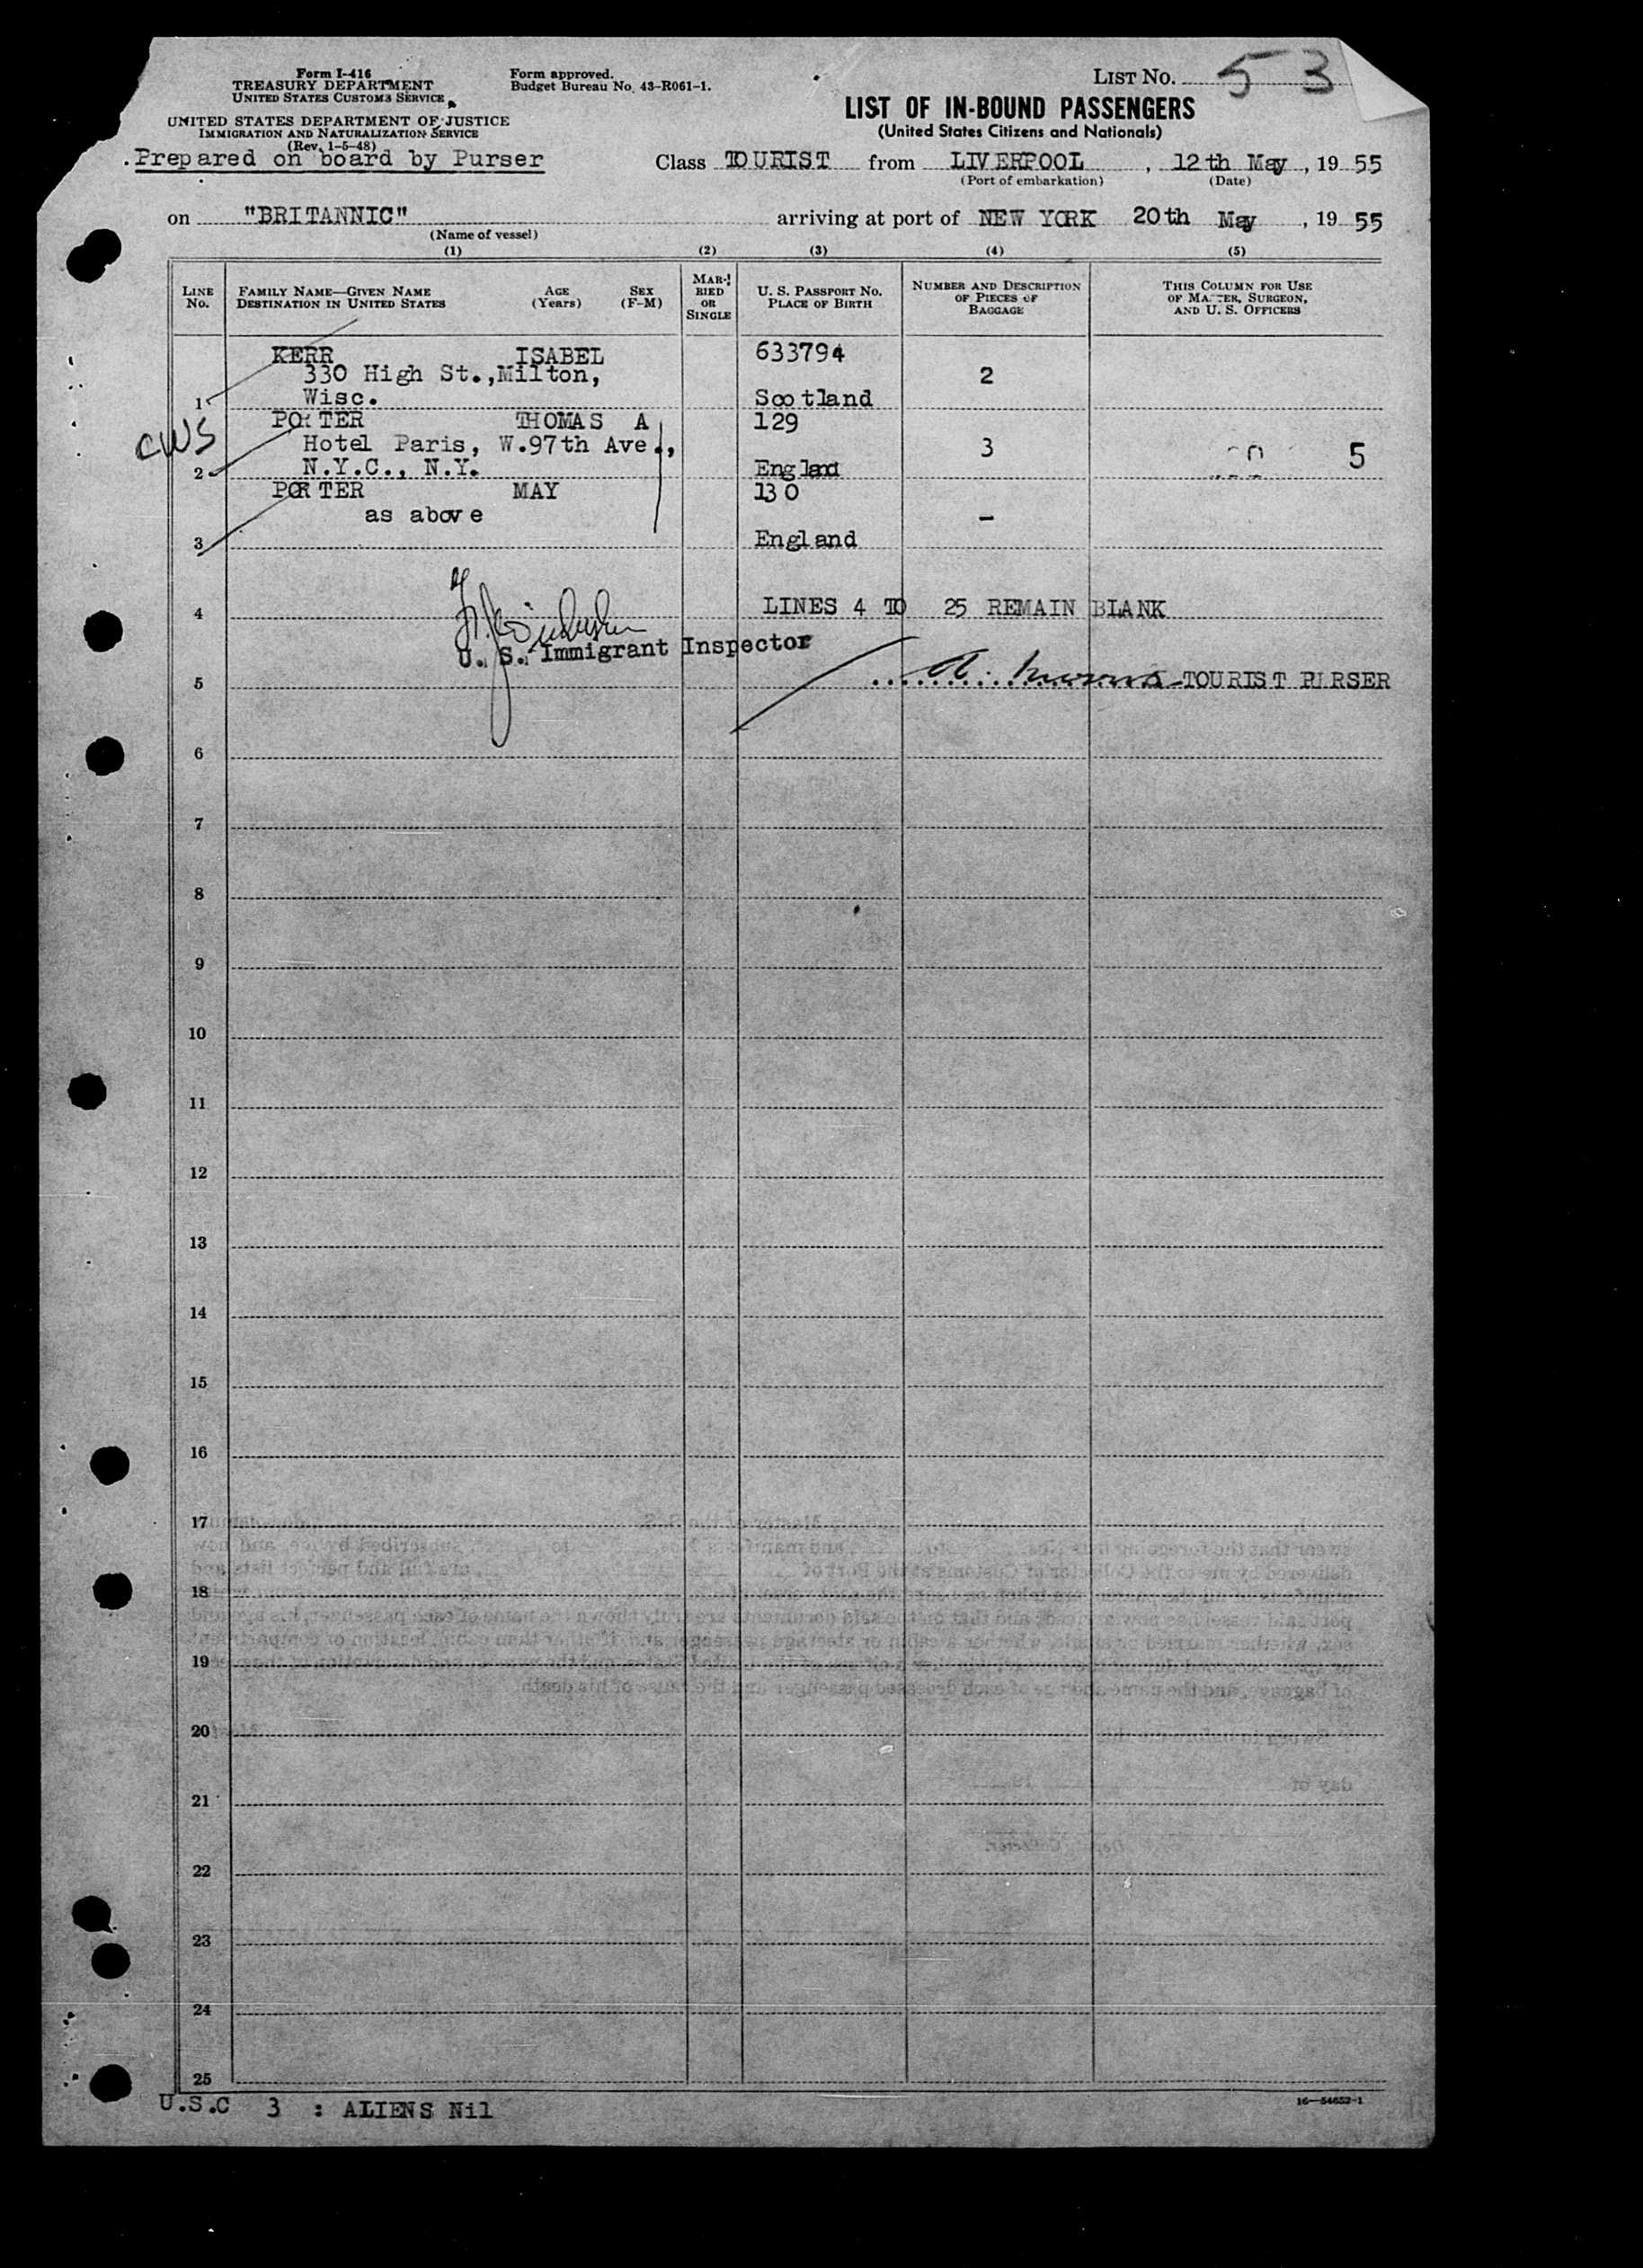 Form I-416
TREASURY DEPARTMENT
UNITED STATES CUSTOMS SERVICE
UNITED STATES DEPARTMENT OF JUSTICE
IMMIGRATION AND NATURALIZATION SERVICE
(Rev. 1-5-48)
Form approved.
Budget Bureau No. 43-R061-1.
LIST NO. 53
LIST OF IN-BOUND PASSENGERS
(United States Citizens and Nationals)
Prepared on board by Purser
Class TOURIST from LIVERPOOL, 12th May, 1955
(Port of embarkation) (Date)
on "BRITANNIC" arriving at port of NEW YORK 20th May, 1955
(Name of vessel)
(1) (2) (3) (4) (5)
LINE NO.
FAMILY NAME—GIVEN NAME AGE SEX
DESTINATION IN UNITED STATES (Years) (F-M)
MARRIED OR SINGLE
U. S. PASSPORT NO.
PLACE OF BIRTH
NUMBER AND DESCRIPTION
OF PIECES OF
BAGGAGE
THIS COLUMN FOR USE
OF MASTER, SURGEON,
AND U. S. OFFICERS
KERR ISABEL 633794
330 High St.,Milton, 2
1 Wisc. Scotland
CWS
PORTER THOMAS A 129
Hotel Paris, W.97th Ave., 3 5
2 N.Y.C., N.Y. England
PORTER MAY 130
as above -
3 England
4 LINES 4 TO 25 REMAIN BLANK
U. S. Immigrant Inspector
5 TOURIST PURSER
6
7
8
9
10
11
12
13
14
15
16
17
18
19
20
21
22
23
24
25
U.S.C 3 : ALIENS Nil
16—54652-1